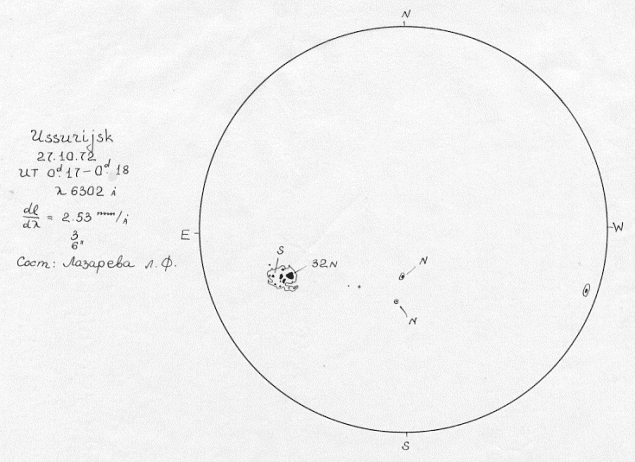 N
Ussurijsk
27.10.72
UT 0ᵈ.17-0ᵈ.18
λ 6302 Å
dl/dλ = 2.53 mm/Å
3
6"
Сост: Лазарева Л.Ф.
E
W
S
32N
N
N
S